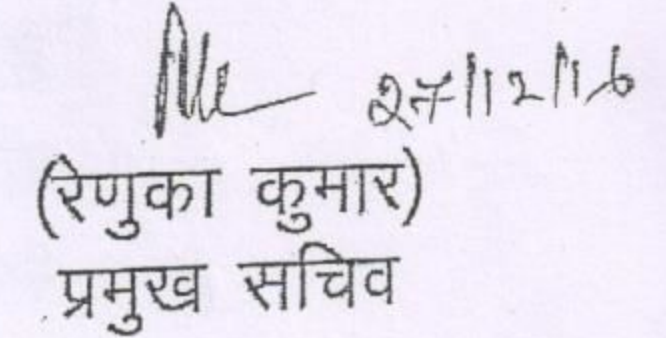 27/12/16
(रेणुका कुमार)
प्रमुख सचिव